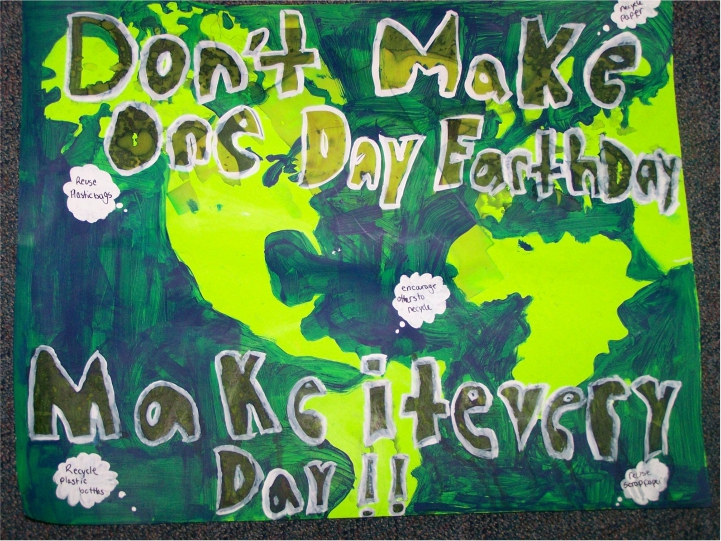 recycle
paper
Don't Make
One Day EarthDay
Reuse
Plastic bags
encourage
others to
recycle
Make it every
Day !!
Recycle
plastic
bottles
reuse
scrap paper